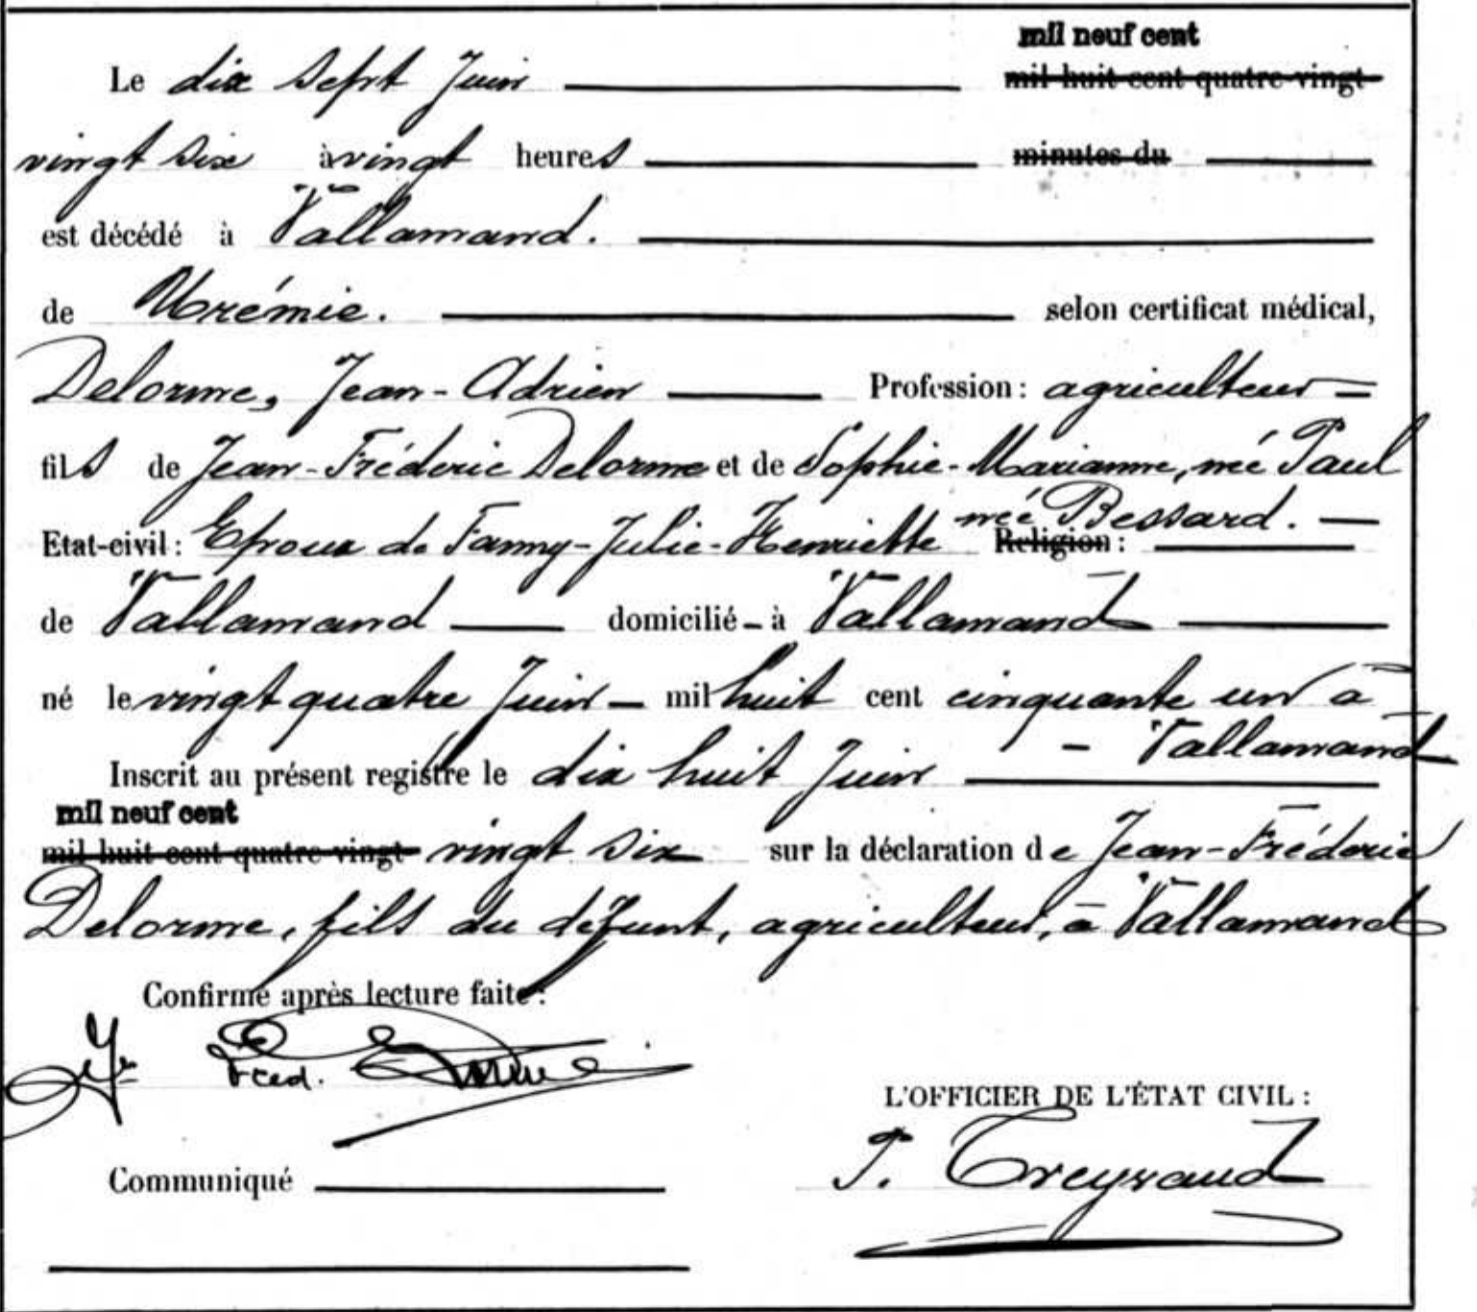 mil neuf cent
Le dix sept Juin mil huit cent quatre-vingt
vingt six à vingt heures minutes du
est décédé à Vallamand.
de Urémie. selon certificat médical,
Delorme, Jean-Adrien Profession: agriculteur
fils de Jean-Fréderic Delorme et de Sophie-Marianne, née Paul
née Bessard.
Etat-civil: Epoux de Fanny-Julie-Henriette Religion:
de Vallamand domicilié à Vallamand
né le vingt quatre Juin mil huit cent cinquante un à
Vallamand
Inscrit au présent registre le dix huit Juin
mil neuf cent
mil huit cent quatre-vingt vingt six sur la déclaration de Jean-Fréderic
Delorme, fils du défunt, agriculteur, à Vallamand
Confirmé après lecture faite:
L'OFFICIER DE L'ÉTAT CIVIL:
Communiqué